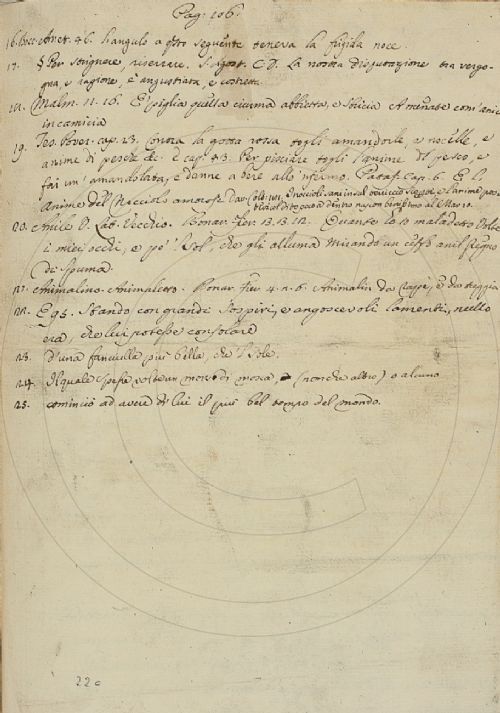 Pag. 106.
16. Bocc. Amet. 46. L'angulo a qsto seguente teneva la frigida noce.
17. § Per strignere, riserrare. S. Agost. C. D. La nostra disputazione tra vergo-
gna, e ragione, è angustiata, e costretta.
18. Malm. 11. 16. E piglia quella ciurma abbietta, e sbricia A menate com' anici
in camicia
19. Tes. Pover. cap. 23. Contra la gotta rossa togli amandorle, e nocelle, e
anime di pesche &c. E cap. 43. Per pisciare togli l'anime del pesco, e
fai un' amandolata, e danne a bere allo 'nfermo. Pataff. cap. 6. E l'
Anime del Nicciolo amorose Dav. Colt. I nocciol. e l'anime
dentro al Marzo.
20. Anile D. Lat. Vecchio. Bonar. Fier. Quante la maladetto
i miei occhi, e po' Sol, che gli alluma Mirando un ceffo anil pregno
di spuma.
21. Animalino. Animaletto. Bonar. Fier. 4. n. 6. Animalin da
22. Egs. Stando con grandi sospiri, e angoscevoli lamenti, nullo
era, che lui potesse consolare
23. d'una fanciulla piu bella, che 'l Sole.
24. Il quale spesse volte un morso di mosca, (non che altro) o alcuno
25. cominciò ad avere di lui il piu bel tempo del mondo.
220